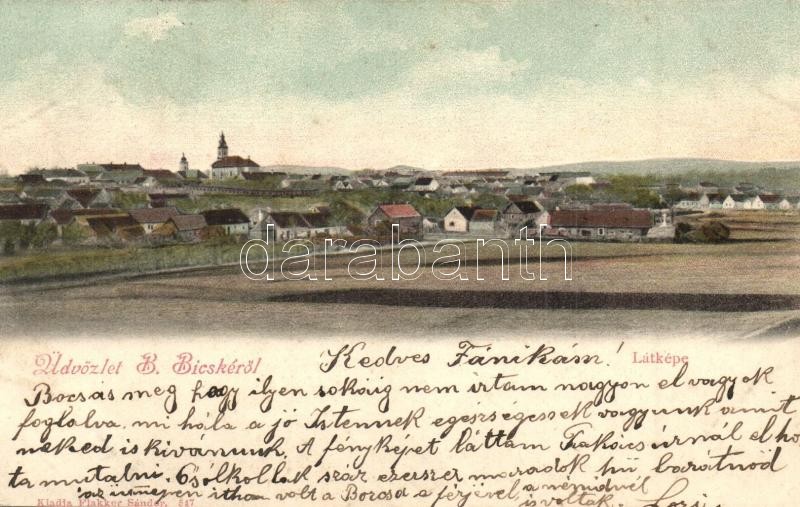 darabanth
Üdvözlet B. Bicskéről
Látképe
Kedves Fánikám!
Bocsás meg hogy ilyen sokáig nem irtam nagyon el vagyok
foglolva. mi hála a jó Istennek egészségessek vagyunk amit
neked is kivánunk. A fényképet láttam Takács úrnál el ho
ta mutatni. Csólkollak száz ezerszer maradok hű barátnőd
ünnepen itthon volt a Borcsa a férjével, a
is voltak.
Kiadja Flakker Sándor. 847